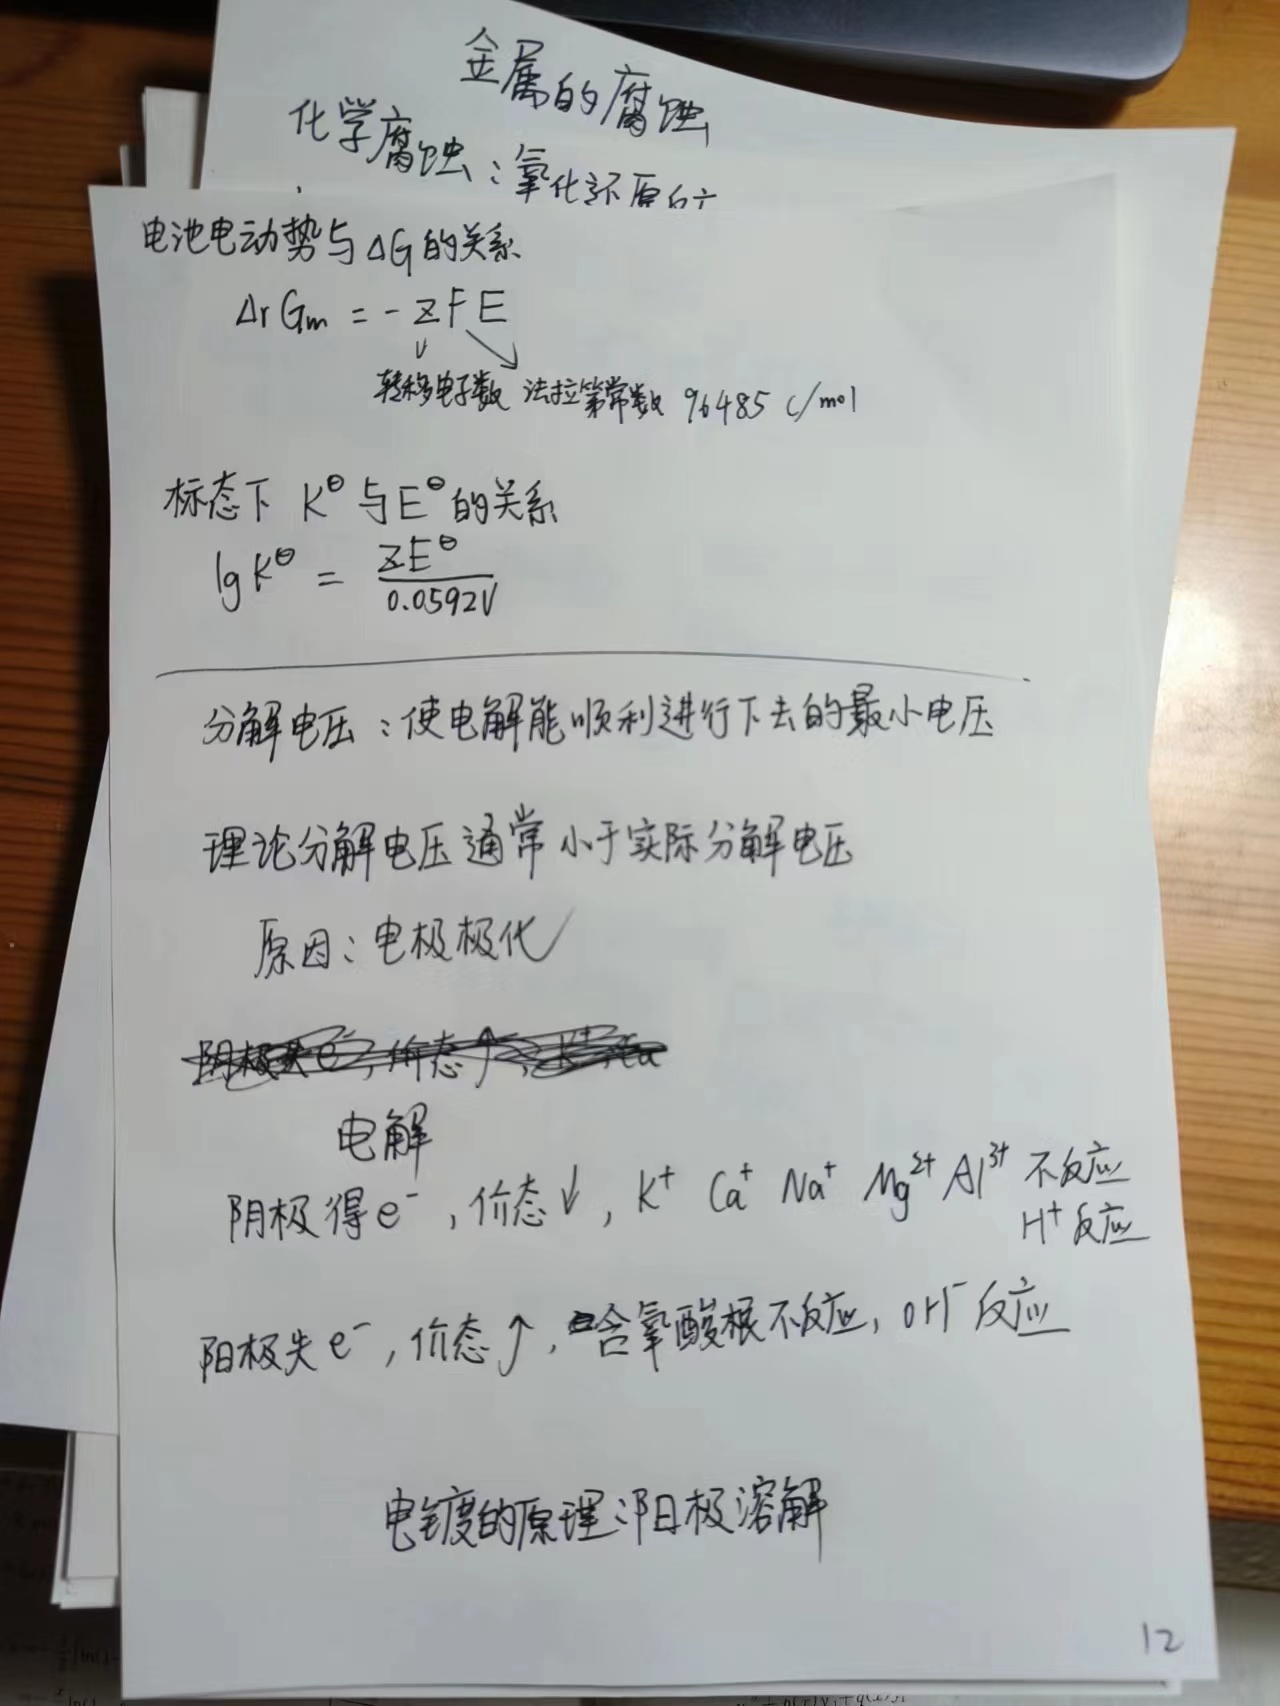 金属的腐蚀
化学腐蚀：氧化还原
电池电动势与ΔG的关系
ΔrGm = -zFE
转移电子数 法拉第常数 96485 C/mol
标态下 K^⊖ 与E^⊖的关系
lgK^⊖ = zE^⊖ / 0.0592V
分解电压：使电解能顺利进行下去的最小电压
理论分解电压通常小于实际分解电压
原因：电极极化
阴极失e⁻, 价态↑,
电解
阴极得e⁻, 价态↓, K⁺ Ca⁺ Na⁺ Mg²⁺ Al³⁺ 不反应
H⁺反应
阳极失e⁻, 价态↑, 含氧酸根不反应, OH⁻反应
电镀的原理：阳极溶解
12